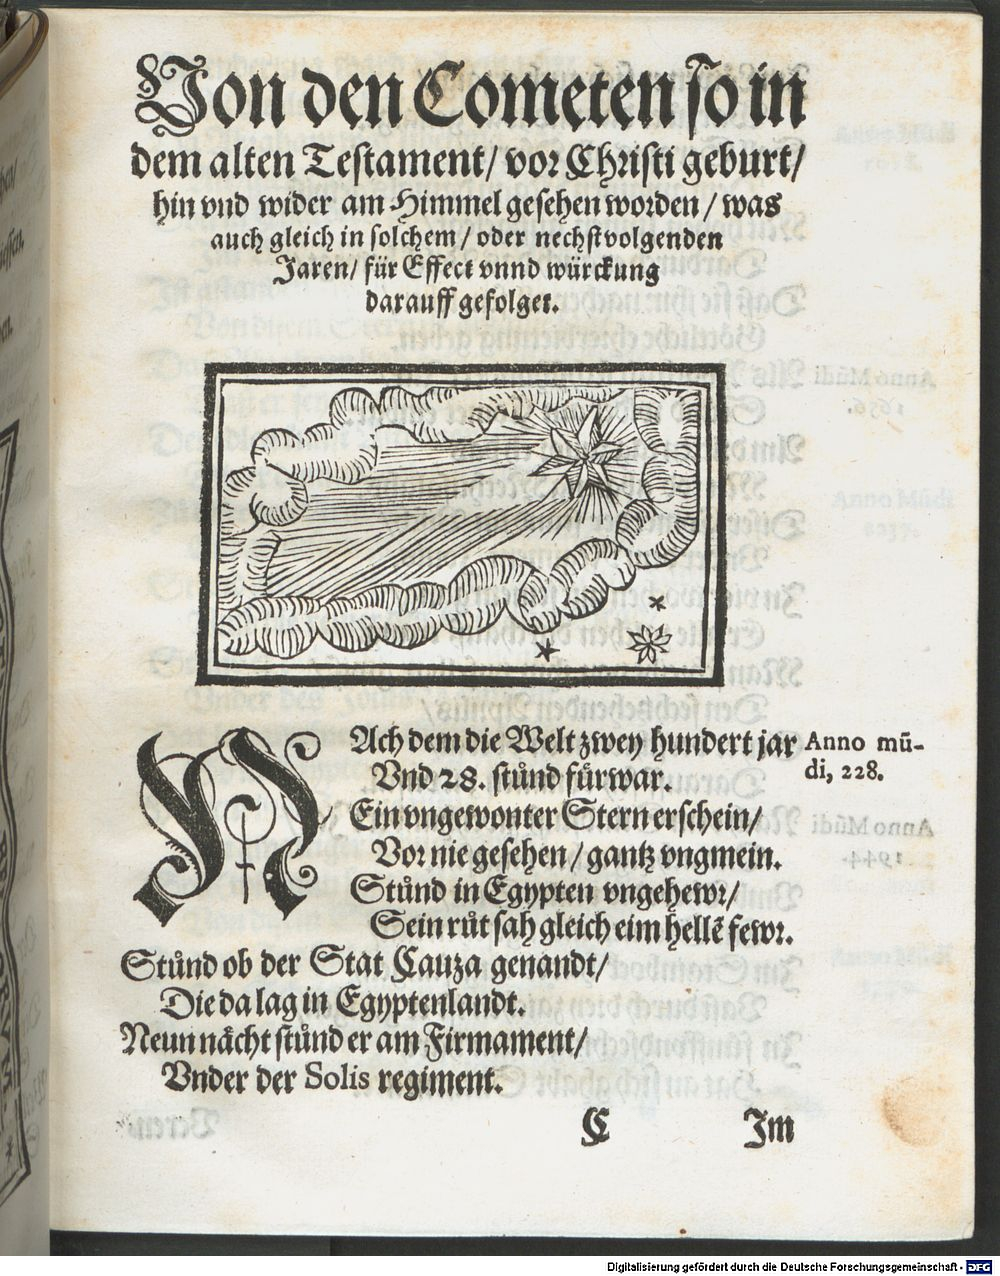 Von den Cometen so in
dem alten Testament/ vor Christi geburt/
hin vnd wider am Himmel gesehen worden/ was
auch gleich in solchem/ oder nechstvolgenden
Jaren/ für Effect vnnd würckung
darauff gefolget.
NAch dem die Welt zwey hundert jar
Vnd 28. stůnd fürwar.
Anno mū-
di, 228.
Ein vngewonter Stern erschein/
Vor nie gesehen/ gantz vngmein.
Stůnd in Egypten vngehewr/
Sein růt sah gleich eim hellē fewr.
Stůnd ob der Stat Cauza genandt/
Die da lag in Egyptenlandt.
Neun nächt stůnd er am Firmament/
Vnder der Solis regiment.
C Jm
Digitalisierung gefördert durch die Deutsche Forschungsgemeinschaft - DFG